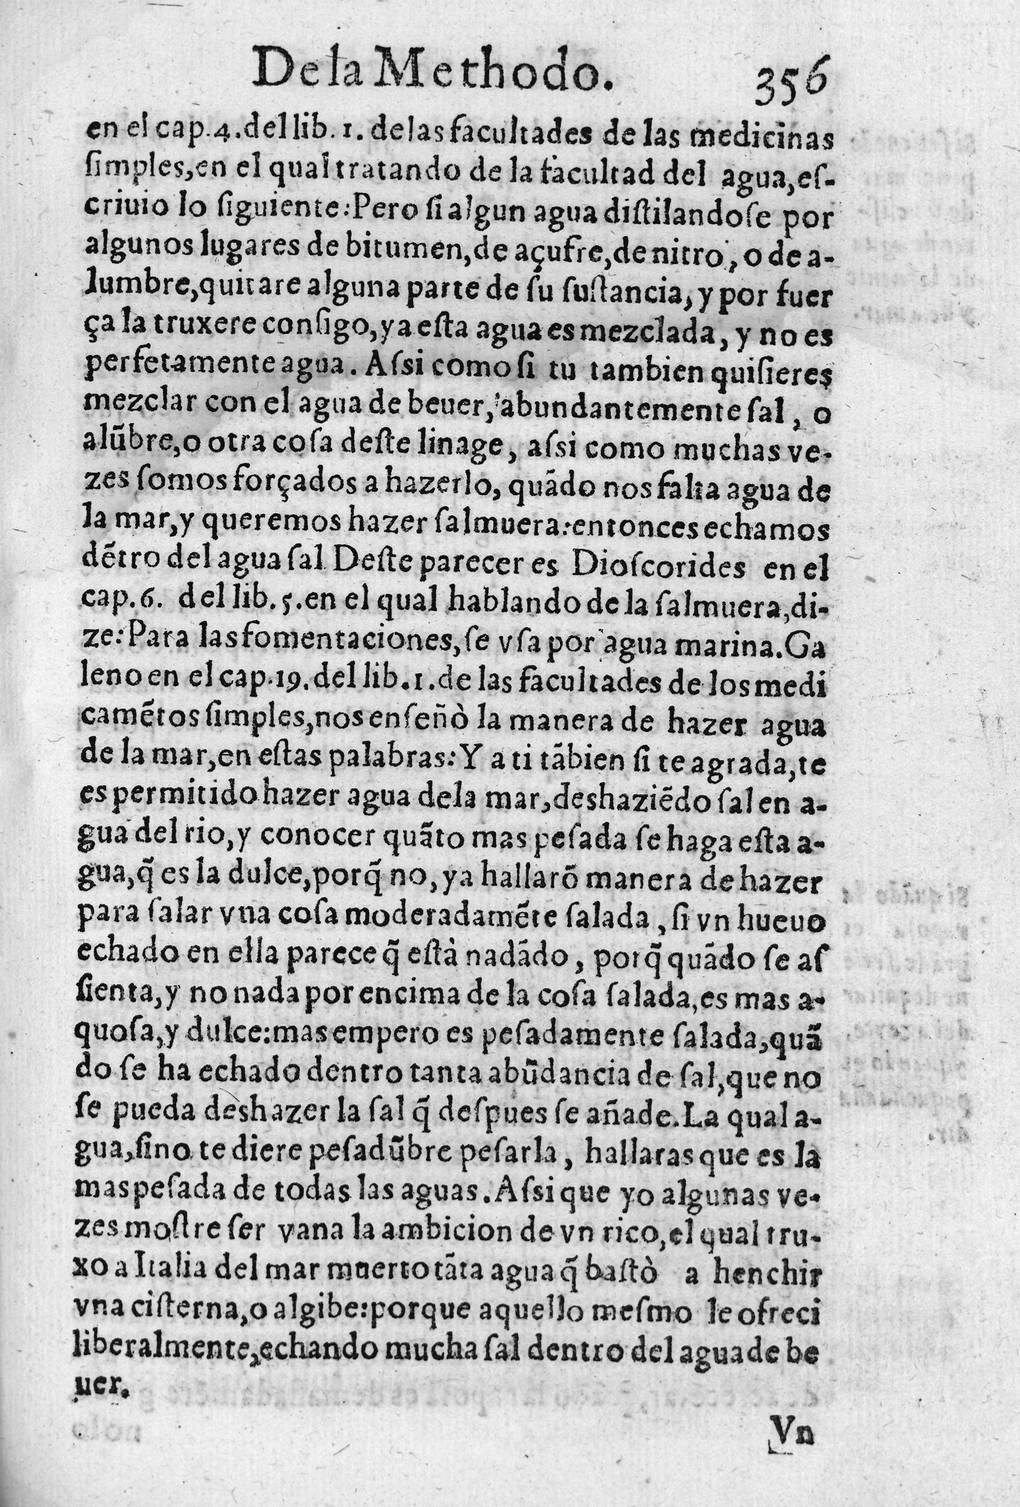 De la Methodo. 356
en el cap.4.del lib. 1. de las facultades de las medicinas
ſimples,en el qual tratando de la facultad del agua,eſ-
criuio lo ſiguiente:Pero ſi algun agua diſtilandoſe por
algunos lugares de bitumen,de açufre,de nitro, o de a-
lumbre,quitare alguna parte de ſu ſuſtancia, y por fuer
ça la truxere conſigo,ya eſta agua es mezclada, y no es
perfetamente agua. Aſsi como ſi tu tambien quiſieres
mezclar con el agua de beuer, abundantemente ſal, o
alũbre,o otra coſa deſte linage, aſsi como muchas ve-
zes ſomos forçados a hazerlo, quãdo nos falta agua de
la mar,y queremos hazer ſalmuera:entonces echamos
dẽtro del agua ſal Deſte parecer es Dioſcorides en el
cap.6. del lib.5.en el qual hablando de la ſalmuera,di-
ze:Para las fomentaciones,ſe vſa por agua marina.Ga
leno en el cap.19.del lib.1.de las facultades de los medi
camẽtos ſimples,nos enſeñò la manera de hazer agua
de la mar,en eſtas palabras:Y a ti tãbien ſi te agrada,te
es permitido hazer agua dela mar,deshaziẽdo ſal en a-
gua del rio,y conocer quãto mas peſada ſe haga eſta a-
gua,q̃ es la dulce,porq̃ no, ya hallarõ manera de hazer
para ſalar vna coſa moderadamẽte ſalada, ſi vn hueuo
echado en ella parece q̃ eſtà nadãdo, porq̃ quãdo ſe aſ
ſienta,y no nada por encima de la coſa ſalada,es mas a-
quoſa,y dulce:mas empero es peſadamente ſalada,quã
do ſe ha echado dentro tanta abũdancia de ſal,que no
ſe pueda deshazer la ſal q̃ deſpues ſe añade.La qual a-
gua,ſino te diere peſadũbre peſarla, hallaras que es la
mas peſada de todas las aguas.Aſsi que yo algunas ve-
zes moſtre ſer vana la ambicion de vn rico,el qual tru-
xo a Italia del mar muerto tãta agua q̃ baſtò a henchir
vna ciſterna,o algibe:porque aquello meſmo le ofreci
liberalmente,echando mucha ſal dentro del agua de be
uer.
Vn